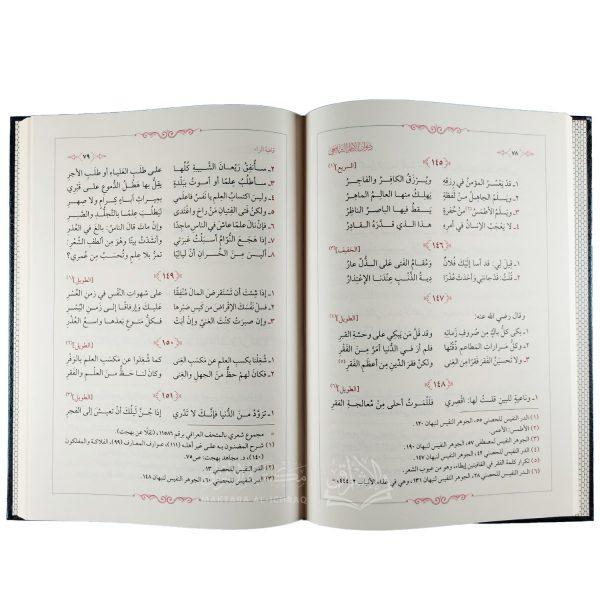 ٧٨
ديوان الإمام الشافعي
﴿١٤٥﴾
[السريع](١)
١ـ قد يَعْسُرُ المؤمنُ في رزقِهِ ويُرْزَقُ الكافِرُ والفاجِرُ
٢ـ ويَسْلَمُ الجاهلُ مِنْ لَفْظَةٍ يهلكُ منها العالمُ الماهرُ
٣ـ ويَسْلَمُ الأَطْمَسُ(٢) منْ حُفرةٍ يَسقطُ فيها الباصرُ الناظرُ
٤ـ لا يَعْجَبُ الإنسانُ في أمره هذا الذي قدَّرَهُ القادرُ
﴿١٤٦﴾
[الخفيف](٣)
١ـ قيلَ لي: قد أسا إليكَ فلانٌ ومُقامُ الفتى على الذُّلِّ عارُ
٢ـ قُلْتُ: قد جاءني وأحدثَ عُذرًا ديةُ الذَّنْبِ عِندنا الإعْتِذارُ
﴿١٤٧﴾
وقال رضي الله عنه:
[الطويل](٤)
١ـ بكى كلُّ باكٍ مِن صُروفِ زمانِهِ وقد قلَّ من يَبكي على وحشةِ القبرِ
٢ـ وكلُّ مراراتِ المطاعمِ ذُقْتُها فلم أرَ في الدُّنيا أمَرَّ منَ الفَقْرِ
٣ـ ولا تحسبَنَّ الفقرَ فقرًا مِنَ الغِنى ولكنَّ فقرَ الدِّينِ من أعظمِ الفَقْرِ(٥)
﴿١٤٨﴾
[الطويل](٦)
١ـ وناعيةٍ للبين قلتُ لها: اقْصِري فلَلْمَوتُ أحلى مِنْ مُعالجةِ الفقرِ
(١) الدر النفيس للحصني ٥٥، الجوهر النفيس لنبهان ١٣٠.
(٢) الأطمس: الأعمى.
(٣) الجوهر النفيس لمصطفى ٥٧، الجوهر النفيس لنبهان ١٩٠.
(٤) الدر النفيس للحصني
(٥) تكرار كلمة الفقر في القافيتين إيطاء، وهو من عيوب الشعر.
(٦) الدر النفيس للحصني ٢٨، الجوهر النفيس لنبهان ١٣١، وهي في غذاء الألباب
٧٩
قافية الراء
٢ـ سأُنفِقُ رَيْعانَ الشَّبيبةِ كُلَّها على طَلَبِ العَلياءِ أو طلبِ الأجرِ
٣ـ سأطلُبُ عِلمًا أو أموتُ بِبَلْدَةٍ يقِلُّ بها هَطْلُ الدُّموعِ على قَبْري
٤ـ وليس اكتسابُ العِلمِ يا نَفْسُ فاعلمي بميراثِ آباءٍ كِرامٍ ولا صِهرِ
٥ـ ولكنْ فتى الفِتيانِ مَنْ راحَ واغتدى ليَطْلُبَ عِلمًا بالتَّجَلُّدِ والصَّبرِ
٦ـ فإنْ نالَ عِلمًا عاشَ في الناسِ ماجدًا وإنْ ماتَ قال الناسُ: بالغَ في العُذرِ
٧ـ إذا هَجَعَ النُّوَّامُ أَسبَلْتُ عَبرَتي وأنشدتُ بيتًا وهْوَ مِن ألطفِ الشِّعْرِ:
٨ـ أليسَ مِنَ الخُسرانِ أنَّ لَياليًا تمرُّ بلا عِلمٍ وتُحسَبُ مِنْ عُمري؟
﴿١٤٩﴾
[الطويل](١)
١ـ إذا شِئتَ أن تَستَقرِضَ المالَ مُنفِقًا على شهواتِ النَّفْسِ في زمنِ العُسْرِ
٢ـ فسَلْ نَفْسَكَ الإقراضَ من كيسِ صَبرِها عَليكَ وإرفاقًا إلى زَمَنِ اليُسْرِ
٣ـ فإنْ صبرَتْ كُنتَ الغَنيَّ وإنْ أبَتْ فكلُّ مَنُوعٍ بعدها واسعُ العُذْرِ
﴿١٥٠﴾
[الطويل](٢)
١ـ شُغِلْنا بكسبِ العلمِ عن مَكسبِ الغِنى كما شُغِلوا عن مكسبِ العلمِ بالوَفْرِ
٢ـ فكانَ لهم حظٌّ منَ الجهلِ والغِنى وكانَ لنا حَظٌّ منَ العلمِ والفَقرِ
﴿١٥١﴾
[الطويل](٣)
١ـ تزوَّدْ منَ الدُّنيا فإنَّكَ لا تَدري إذا جُنَّ ليلُكَ أنْ تعيشَ إلى الفجرِ
= مجموع شعري بالمتحف العراقي برقم ١١٥٨٦، (نقلًا عن بهجت).
(١) شرح المضنون به على غير أهله (١١١)، عوارف المعارف (٩٩)، الفلاكة والمفلكون د. مجاهد بهجت: ص٧٥.
(٢) الدر النفيس للحصني ١٣.
(٣) الدر النفيس للحصني ٦٠، الجوهر النفيس لنبهان ١٤٨.
MAKTABA AL-ICHRAQ